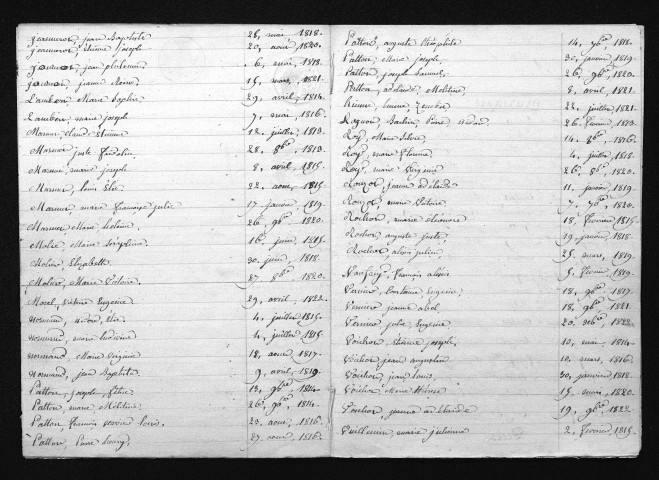 Jeannerot, jean Baptiste 28, mai, 1818.
Jeannerot, étienne joseph 20, aout, 1820.
jean philemin 6, mai, 1813.
15, mars, 1821.
Lambert, Marie Sophie 29, avril, 1814.
Lambert, marie joseph 7, mai, 1816
Marmier claude étienne 12, juillet, 1813.
Marmier juste fidelin 28, 8bre, 1813.
Marmier, marie joseph 8, avril, 1815.
Marmier, louis élie 22, aout, 1815
Marmier, marie françoise julie 17, janvier, 1819.
Marmier Marie 26, 9bre, 1820.
Molié, Marie Séraphine 16, juin, 1815.
Molier, Elizabeth 30, juin, 1818.
Molier, Marie Victoire 27, 8bre, 1820.
Morel, Victoire Eugenie 29, avril, 1822.
élie 4, juillet, 1815.
marie ludivine 4, juillet, 1815
Normand, Marie Virginie 18, aout, 1817.
Normand, jean Baptiste 9, avril, 1819.
Patton, joseph félix 13, 9bre, 1814.
Patton, marie Mélitine 26, 9bre, 1814.
Patton, françois xavier louis 20, aout, 1816.
Patton, Pierre 27, aout, 1816.
Patton, auguste théophile 14, 9bre, 1818.
Patton, Marc joseph, janvier, 1819.
Patton, joseph Samuel 26, 9bre, 1820.
Patton, adelaide Mélitine 8, avril, 1821.
22, juillet, 1821.
Pierre 26, fevrier, 1823.
Roy, Marie 14, 8bre, 1816.
Roy, marie florine 4, juillet, 1818.
Roy, marie Virginie 26, 8bre, 1820.
Rouzot, jeanne adelaide 11, janvier, 1819.
Rouzot, marie Victoire 7, 7bre, 1820.
Rochor, marie étiennette 18, fevrier, 1815.
Rochor, auguste juste, 19, janvier, 1818.
Rochor, alexis julien 25, mars, 1819.
françois alexis 5, fevrier, 1819.
Vernier, Constance Eugenie, 18, 9bre, 1817.
Vernier, jeanne abel 18, 9bre, 1821.
Vernier julie Eugenie 20, Xbre, 1822.
Voichor, étienne joseph, 10, mai, 1814.
Voichor jean augustin 10, mars, 1816.
Voichor, jean louis 30, janvier 1818.
Voichor, Marie thérèse 15, mars, 1820.
Voichor, jeanne adelaide 19, 9bre, 1822.
Vuillemin, marie julienne 2, fevrier, 1815.